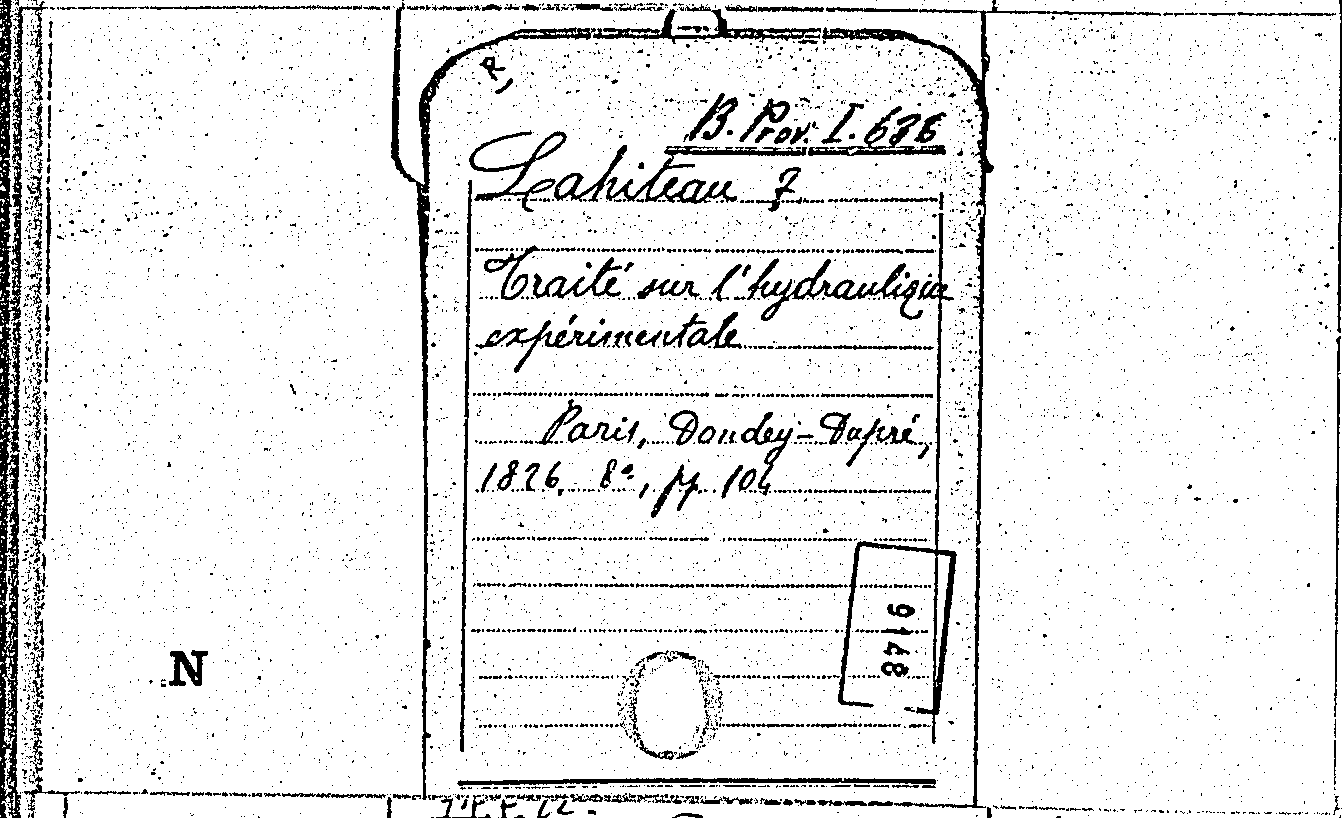 R,
B. Prov. I. 686
Lahiteau J
Traité sur l'hydraulique
expérimentale
Paris, Dondey-Dupré,
1826. 8°, pp. 104
9148
N